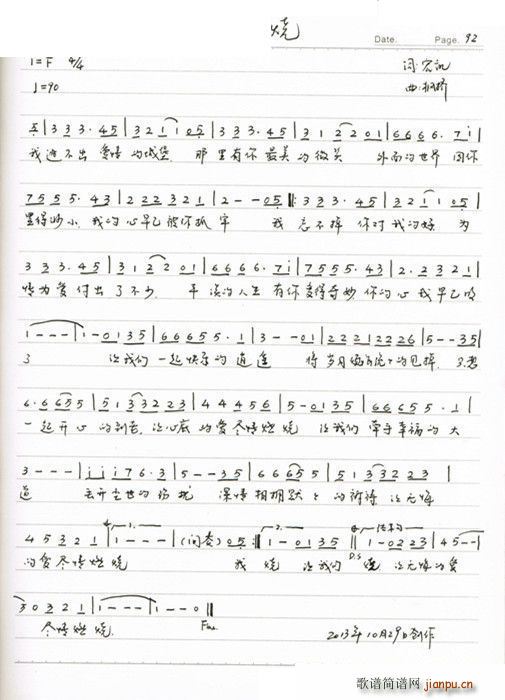 烧
Date. Page. 92
1=F 4/4 词:
♩=90 曲:
5|3 3 3. 4 5|3 2 1 1 0 5|3 3 3. 4 5|3 1 2 2 0 1|6 6 6 6. 7 i|
我逃不出 爱情的城堡. 那里有你最美的微笑 外面的世界因你
7 5 5 5. 4 3|2 2 2 3 2 1|2 - - 0 5‖: 3 3 3. 4 5|3 2 1 1 0 5|
变得妙小 我的心早已被你抓牢 我忘不掉你对我的好 为
3 3 3. 4 5|3 1 2 2 0 1|6 6 6 6. 7 i|7 5 5 5. 4 3|2. 2 3 2 1|
情为爱付出了不少 平淡的人生有你变得奇妙 你的心我早已明
1 - - -|1 - 0 1 3 5|6 6 6 5 5. 1|3 - - 0 1|2 2 2 1 2 2 2 6|5 - - 3 5|
了 让我们一起快乐的逍遥 将岁月 的 掉
6. 6 6 5 5|5 1 3 3 2 2 3|4 4 4 4 5 6|5 - 0 1 3 5|6 6 6 5 5. 1|
一起开心的 让心底的爱尽情燃烧 让我们牵手幸福的大
3 - - -|i i i 7 6. 3|5 - - 3 5|6 6 6 5 5|5 1 3 3 2 2 3|
道 去开尘世的 扰 深情相拥默々的祈祷 让无悔
4 5 3 2 1|1 - - -|(间奏) 0 5 :‖1 - 0 1 3 5‖1 - 0 2 2 3|4 5 - -|
1. 2. 结束句
的爱尽情燃烧 我 烧 让我们 D.S 烧 让无悔的爱
3 0 3 2 1|1 - - -|1 - - 0‖
尽情燃烧. Fine 2013年10月29日创作
歌谱简谱网
jianpu.cn